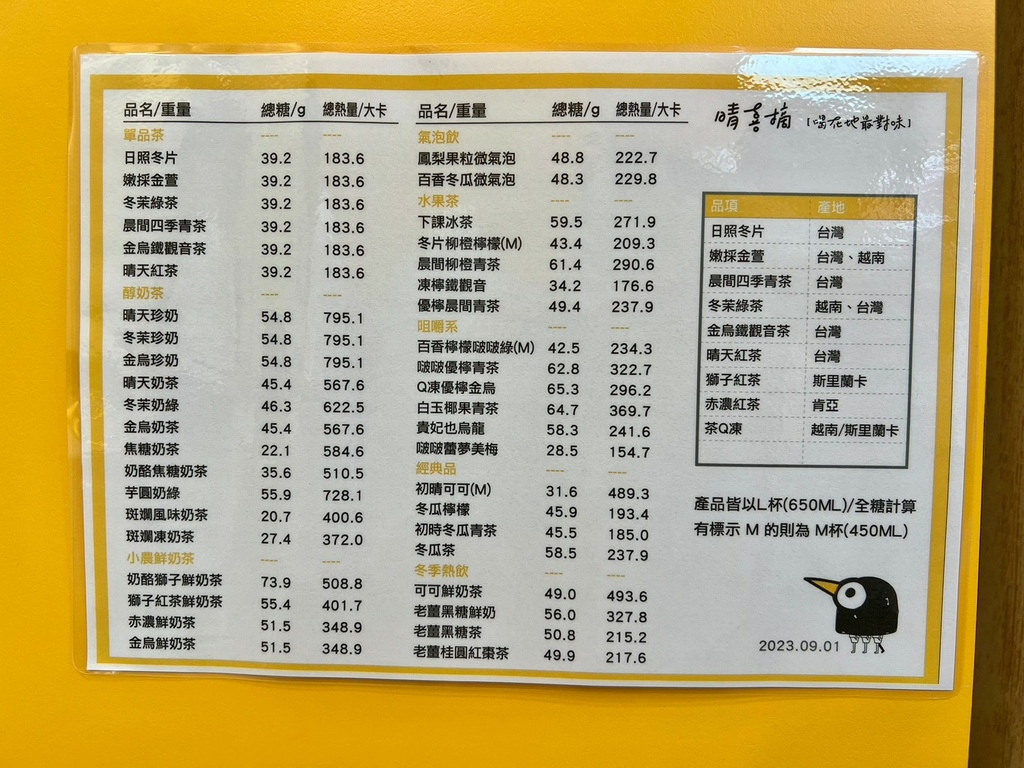 品名/重量 總糖/g 總熱量/大卡
單品茶 ---- ----
日照冬片 39.2 183.6
嫩採金萱 39.2 183.6
冬茉綠茶 39.2 183.6
晨間四季青茶 39.2 183.6
金烏鐵觀音茶 39.2 183.6
晴天紅茶 39.2 183.6
醇奶茶 ---- ----
晴天珍奶 54.8 795.1
冬茉珍奶 54.8 795.1
金烏珍奶 54.8 795.1
晴天奶茶 45.4 567.6
冬茉奶綠 46.3 622.5
金烏奶茶 45.4 567.6
焦糖奶茶 22.1 584.6
奶酪焦糖奶茶 35.6 510.5
芋圓奶綠 55.9 728.1
斑斕風味奶茶 20.7 400.6
斑斕凍奶茶 27.4 372.0
小農鮮奶茶 ---- ----
奶酪獅子鮮奶茶 73.9 508.8
獅子紅茶鮮奶茶 55.4 401.7
赤濃鮮奶茶 51.5 348.9
金烏鮮奶茶 51.5 348.9
品名/重量 總糖/g 總熱量/大卡
氣泡飲 ---- ----
鳳梨果粒微氣泡 48.8 222.7
百香冬瓜微氣泡 48.3 229.8
水果茶 ---- ----
下課冰茶 59.5 271.9
冬片柳橙檸檬(M) 43.4 209.3
晨間柳橙青茶 61.4 290.6
凍檸鐵觀音 34.2 176.6
優檸晨間青茶 49.4 237.9
咀嚼系 ---- ----
百香檸檬啵啵綠(M) 42.5 234.3
啵啵優檸青茶 62.8 322.7
Q凍優檸金烏 65.3 296.2
白玉椰果青茶 64.7 369.7
貴妃也烏龍 58.3 241.6
啵啵蕾夢美梅 28.5 154.7
經典品 ---- ----
初晴可可(M) 31.6 489.3
冬瓜檸檬 45.9 193.4
初時冬瓜青茶 45.5 185.0
冬瓜茶 58.5 237.9
冬季熱飲 ---- ----
可可鮮奶茶 49.0 493.6
老薑黑糖鮮奶 56.0 327.8
老薑黑糖茶 50.8 215.2
老薑桂圓紅棗茶 49.9 217.6
晴喜摘「喝在地最對味」
品項 產地
日照冬片 台灣
嫩採金萱 台灣、越南
晨間四季青茶 台灣
冬茉綠茶 越南、台灣
金烏鐵觀音茶 台灣
晴天紅茶 台灣
獅子紅茶 斯里蘭卡
赤濃紅茶 肯亞
茶Q凍 越南/斯里蘭卡
產品皆以L杯(650ML)/全糖計算
有標示 M 的則為 M杯(450ML)
2023.09.01